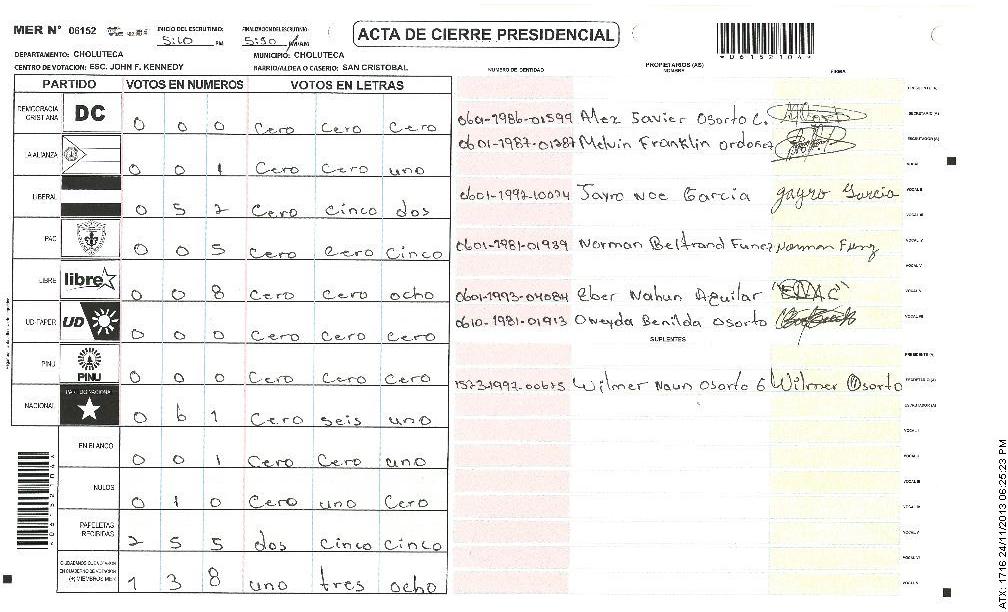 MER N° 06152 INICIO DEL ESCRUTINIO: 5:10 PM FINALIZACION DEL ESCRUTINIO: 5:50 PM/AM ACTA DE CIERRE PRESIDENCIAL
DEPARTAMENTO: CHOLUTECA MUNICIPIO: CHOLUTECA
CENTRO DE VOTACION: ESC. JOHN F. KENNEDY BARRIO/ALDEA O CASERIO: SAN CRISTOBAL
NUMERO DE IDENTIDAD PROPIETARIOS (AS) NOMBRE FIRMA
PARTIDO VOTOS EN NUMEROS VOTOS EN LETRAS
DEMOCRACIA CRISTIANA DC 0 0 0 Cero Cero Cero
LA ALIANZA 0 0 1 Cero Cero uno
LIBERAL 0 5 2 Cero Cinco dos
PAC 0 0 5 Cero Cero Cinco
LIBRE libre 0 0 8 Cero Cero ocho
UD-FAPER UD 0 0 0 Cero Cero Cero
PINU PINU 0 0 0 Cero Cero Cero
NACIONAL PARTIDO NACIONAL 0 6 1 Cero seis uno
EN BLANCO 0 0 1 Cero Cero uno
NULOS 0 1 0 Cero uno Cero
PAPELETAS RECIBIDAS 2 5 5 dos Cinco Cinco
(+) MIEMBROS MER 1 3 8 uno tres ocho
0601-1986-01599 Alez Javier Osorto C.
0601-1987-01287 Melvin Franklin Ordoñez
0601-1992-10074 Jayro Noe Garcia gayro Garcia
0601-1981-01939 Norman Beltrand Funez Norman Funz
0601-1993-04084 Eber Nahun Aguilar
0610-1981-01913 Oneyda Benilda Osorto
SUPLENTES
1523-1992-00675 Wilmer Naun Osorto G Wilmer Osorto
ATX: 1716 24/11/2013 06:25:23 PM